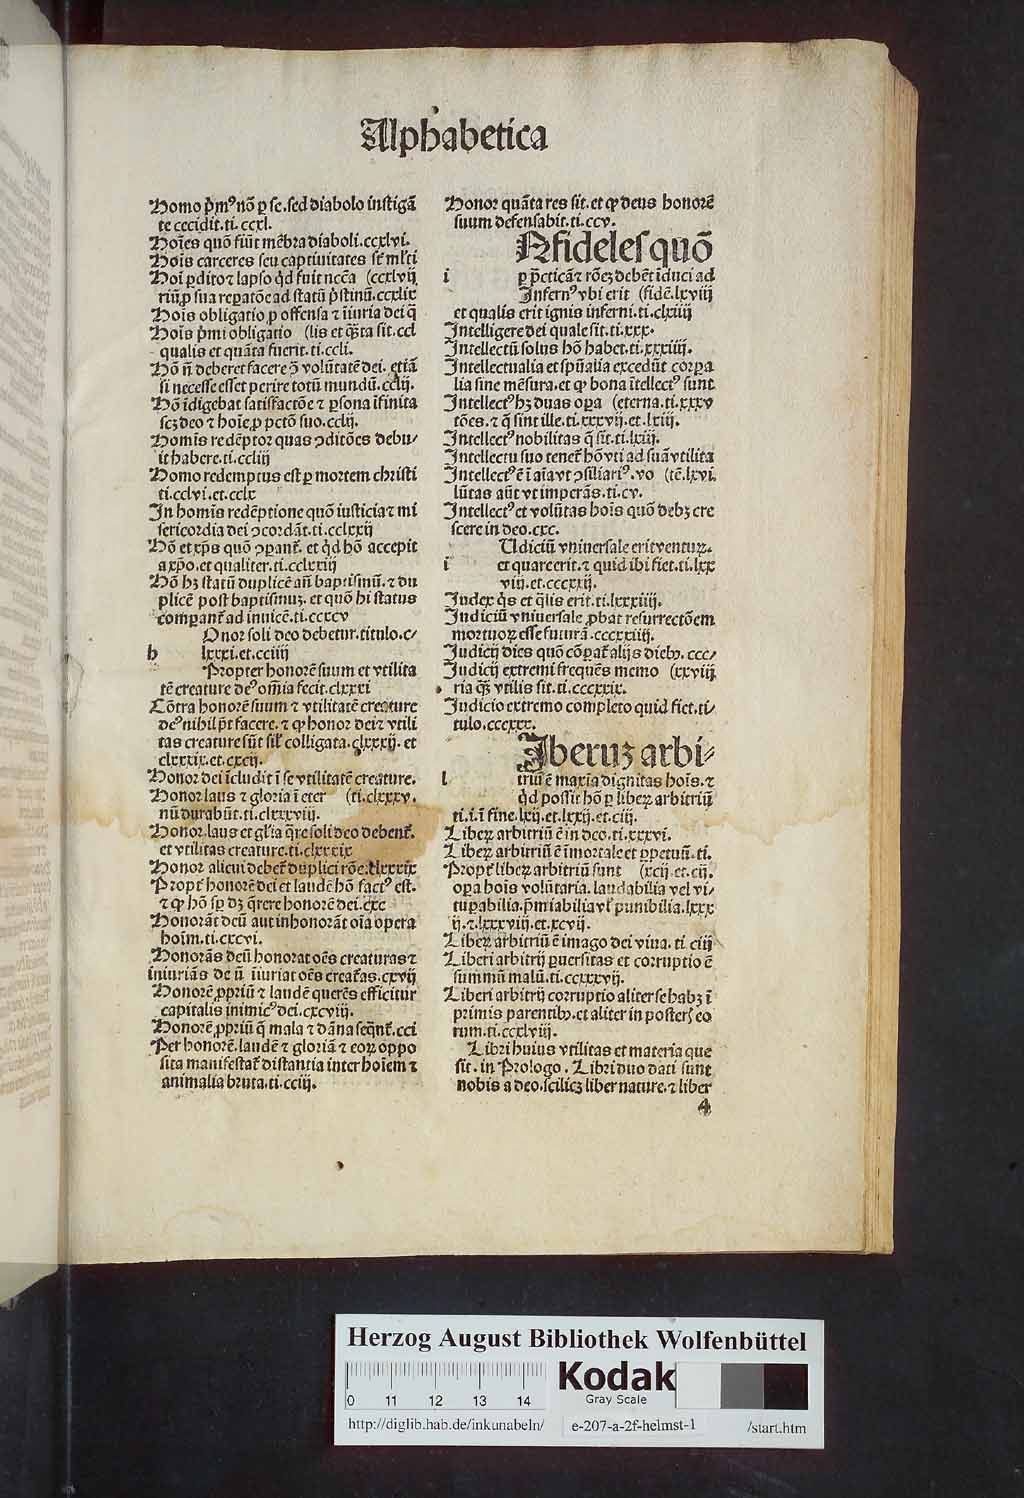 Alphabetica
Homo p̄m⁹ nō ꝑ se. sed diabolo instigā
te cecidit. ti. ccxl.
Hoīes quō fiūt mēbra diaboli. ccxlvi.
Hoīs carceres seu captiuitates st̄ ml'ti
Hoī ꝑdito ⁊ lapso qd̓ fuit nccā (ccxlvij
riū ꝓ sua reꝑatōe ad statū p̄stinū. ccxlix
Hoīs obligatio ꝓ offensa ⁊ iniuria dei q̄
Hoīs p̄mi obligatio (lis et q̄ta sit. ccl
qualis et quāta fuerit. ti. ccli.
Hō nō deberet facere ꝯ̄ volūtatē dei. etiā
si necesse esset perire totū mundū. cclij.
Hō īdigebat satisfactōe ⁊ ꝑsona īfinita
scꝫ deo ⁊ hoīe ꝓ pctō suo. cclij.
Homīs redēptor quas ꝯditōes debu/
it habere. ti. ccliij
Homo redemptus est ꝑ mortem christi
ti. cclvi. et. cclx
In homīs redēptione quō iusticia ⁊ mi
sericordia dei ꝯcordāt. ti. cclxxij
Hō et xp̄s quō ꝯꝑant̄. et qd̓ hō accepit
a xp̄o. et qualiter. ti. cclxxiij
Hō hꝫ statū duplicē añ baptismū. ⁊ du
plicē post baptismuꝫ. et quō hi status
comparant̄ ad inuicē. ti. ccccv
Onor soli deo debetur. titulo. c/
h lxxxi. et. cciiij
Propter honorē suum et vtilita
tē creature de⁹ om̄ia fecit. clxxxi
Cōtra honorē suum ⁊ vtilitatē creature
de⁹ nihil pt̄ facere. ⁊ ꝙ honor dei ⁊ vtili
tas creature sūt sil' colligata. clxxxij. et
clxxxix. et. cxcij.
Honor dei īcludit ī se vtilitatē creature.
Honor laus ⁊ gloria ī eter (ti. clxxxv.
nū durabūt. ti. clxxxviij.
Honor. laus et gl'ia q̄re soli deo debent̄.
et vtilitas creature. ti. clxxxix
Honor alicui debet̄ duplici rōe. clxxxix
Propt̄ honorē dei et laudē hō fact⁹ est.
⁊ ꝙ hō sꝑ dꝫ q̄rere honorē dei. cxc
Honorāt deū aut inhonorāt oīa opera
hoīm. ti. cxcvi.
Honorās deū honorat oēs creaturas ⁊
iniuriās deū. īiuriat oēs creat̄as. cxvij
Honorē ꝓpriū ⁊ laudē querēs efficitur
capitalis inimic⁹ dei. cxcviij.
Honorē ꝓpriū q̄ mala ⁊ dāna seqnt̄. cci
Per honorē. laudē ⁊ gloriā ⁊ eoꝝ oppo
sita manifestat̄ distantia inter hoīem ⁊
animalia bruta. ti. cciij.
Honor quāta res sit. et ꝙ deus honorē
suum defensabit. ti. ccv.
Nfideles quō
i ꝑ p̄cticā ⁊ rōeꝫ debēt īduci ad
Infern⁹ vbi erit (fidē. lxviij
et qualis erit ignis inferni. ti. clxiij
Intelligere dei quale sit. ti. xxx.
Intellectū solus hō habet. ti. xxxiiij.
Intellectualia et spūalia excedūt corꝑa
lia sine mēsura. et ꝙ bona ītellect⁹ sunt
Intellect⁹ hꝫ duas oꝑa (eterna. ti. xxxv
tōes. ⁊ q̄ sint ille. ti. xxxvij. et. lxiij.
Intellect⁹ nobilitas q̄ sit. ti. lxiij.
Intellectu suo tenet̄ hō vti ad suā vtilita
Intellect⁹ ē ī aīa vt ꝯsiliari⁹. vo (tē. lxvi.
lūtas aūt vt imperās. ti. cv.
Intellect⁹ et volūtas hoīs quō debꝫ cre
scere in deo. cxc.
Udiciū vniuersale erit venturꝫ.
i et quare erit. ⁊ quid ibi fiet. ti. lxx
viij. et. cccxxij.
Iudex q̓s et q̄lis erit. ti. lxxxiiij.
Iudiciū vniuersale ꝓbat resurrectōem
mortuoꝝ esse futurā. cccxxiiij.
Iudicij dies quō cōꝑat̄ alijs dieb⁹. ccc/
Iudicij extremi frequēs memo (xxviij
ria q̄ꝫ vtilis sit. ti. cccxxix.
Iudicio extremo completo quid fiet. ti/
tulo. cccxxx.
Iberuꝫ arbi/
l triū ē maxīa dignitas hoīs. ⁊
qd̓ possit hō ꝑ liberꝫ arbitriū
ti. i. ī fine. lxij. et. lxxij. et. ciij.
Liberꝫ arbitriū ē in deo. ti. xxxvi.
Liberꝫ arbitriū ē īmortale et ꝑpetuū. ti.
Propt̄ liberꝫ arbitriū sunt (xcij. et. cij.
oꝑa hoīs volūtaria. laudabilia vel vi/
tuꝑabilia. p̄miabilia vl' punibilia. lxxx
ij. ⁊. lxxxviij. et. xcvij.
Liberꝫ arbitriū ē imago dei viua. ti. ciij
Liberi arbitrij ꝑuersitas et corruptio ē
summū malū. ti. ccxxxvij.
Liberi arbitrij corruptio aliter se habꝫ ī
primis parentibꝫ. et aliter in posteris eo
rum. ti. ccxlviij.
Libri huius vtilitas et materia que
sit. in Prologo. Libri duo dati sunt
nobis a deo. scilicꝫ liber nature. ⁊ liber
4
Herzog August Bibliothek Wolfenbüttel
0 11 12 13 14
Kodak
Gray Scale
http://diglib.hab.de/inkunabeln/ e-207-a-2f-helmst-1 /start.htm